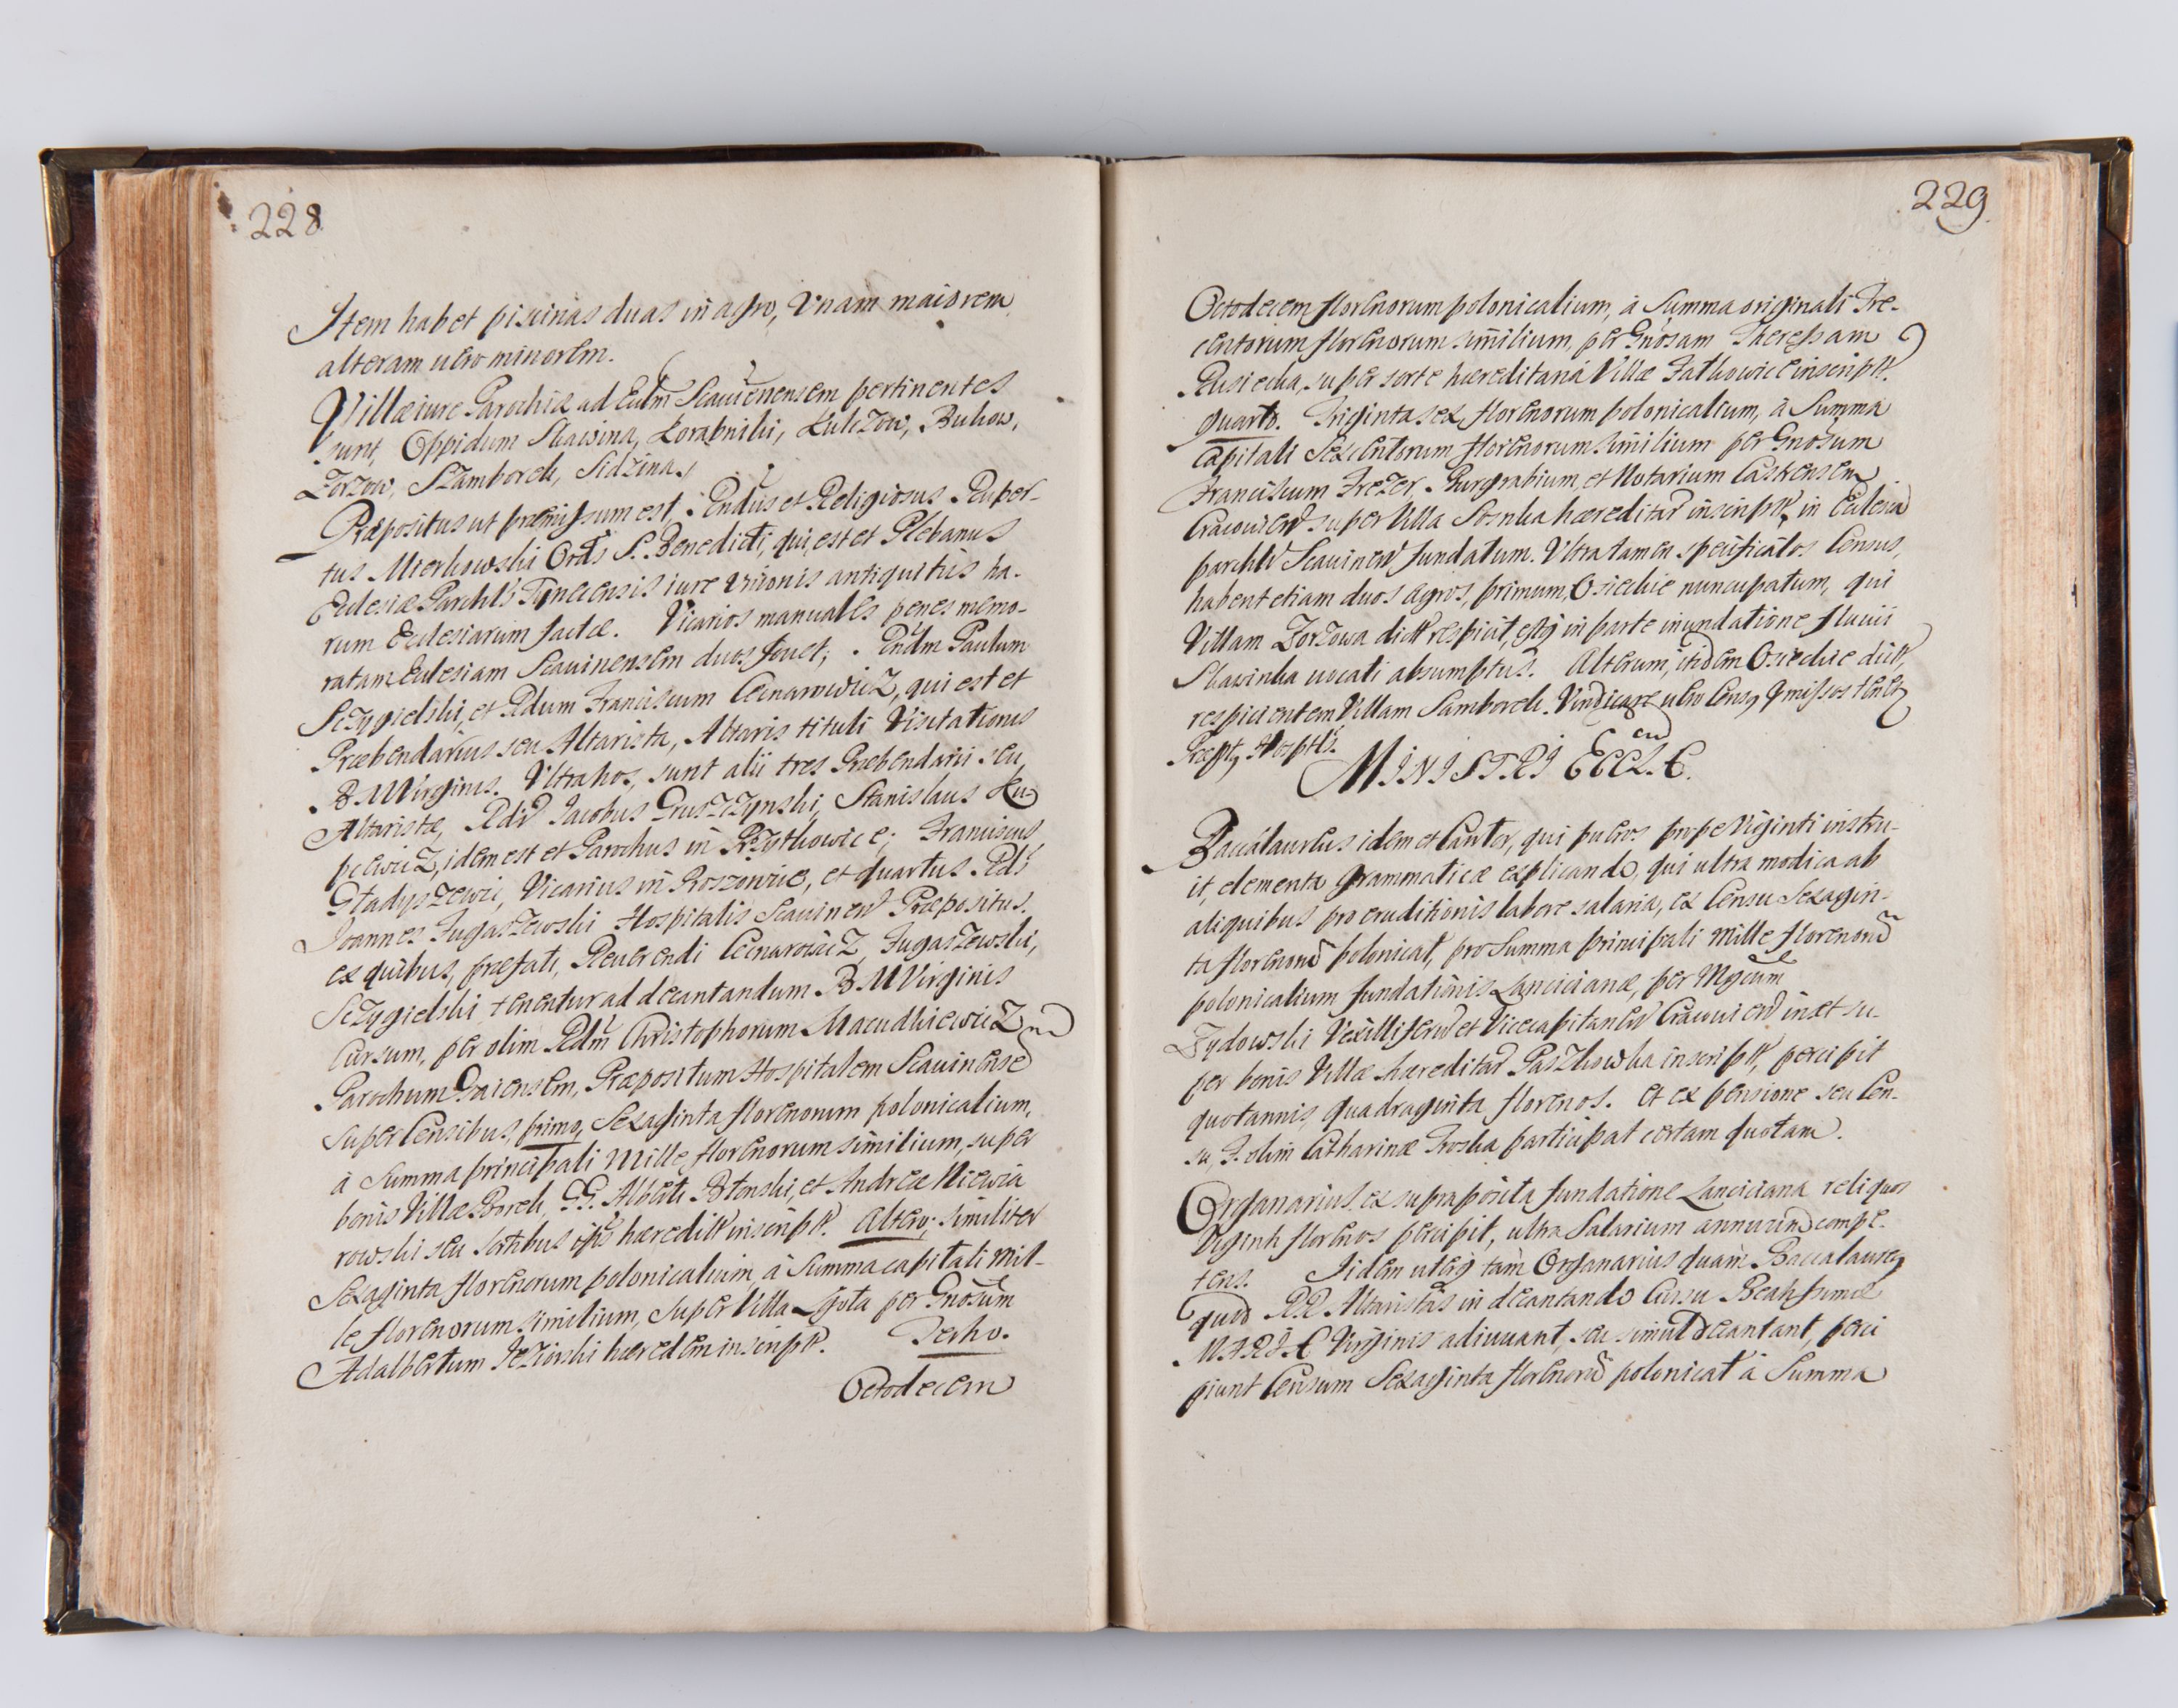 228
Item habet piscinas duas in agro, Vnam maiorem
alteram uero minorem.
Villæ iure Parochiæ ad Eccl̃m Scauinensem pertinentes
sunt, Oppidum Skawina, Korabniki, Kulczow, Bukow,
Zorzow, SZamborek, Sidzina.
Præpositus ut præmissum est, Rñdus et Religiosus Ruper-
tus Mierkowski Ordĩs S. Benedicti, qui est et Plebanus
Ecclesiæ Parchłs Tynecensis iure vnionis antiquitùs ha-
rum Ecclesiarum factæ. Vicarios manuales penes memo-
ratam Ecclesiam Scauinensem duos fouet; Rñdm Paulum
Sczygielski, et Rdum Franciscum CecnarowicZ, qui est et
Præbendarius seu Altarista, Altaris tituli Visitationis
B. M Virginis. Vltra hos, sunt alii tres Præbendarii seu
Altaristæ, Rdi Iacobus GrusZcZynski, Stanislaus Ku-
pcewicZ, idem est et Parochus in PrZytkowice; Franciscus
GladysZewic, Vicarius in Roszowice, et quartus Rds
Ioannes FugasZewski Hospitalis Scauinen Præpositus.
ex quibus, præfati, Reuerendi CecnarowicZ, FugasZewski,
ScZygielski tenentur ad decantandum B M Virginis
Cursum, per olim Rdm̃ Christophorum MacudkiewicZ
Parochum Gaiensem, Præpositum Hospitalem Scauinense
super Censibus, primo, Sexaginta florenorum polonicalium,
à Summa principali Mille florenorum similium, super
bonis Villæ Borek, GG. Alberti Btonski, et Andreæ Niewia
rowski seu sortibus ip̃s hæredit inscript. Altero; similiter
Sexaginta florenorum polonicalium, à Summa capitali Mil-
le florenorum similium, super Villa Lgota per Gnõsum
Adalbertum IeZiorski hæredem inscript. Tertio.
Octodecem
229
Octodecem florenorum polonicalium, à Summa originali Tre-
centorum florenorum similium, per Gnõsam Theressam
Rusiecka, super sorte hæreditaria Villæ Fatkowice inscript.
quarto. Triginta sex florenorum polonicalium, à Summa
Capitali Sexcentorum florenorum similium per Gnõsum
Franciscum FreZer, Burgrabium, et Notarium Castrensem
Cracouien super Villa Sosnka hæreditar inscript, in Ecclesia
parchli Scauinen fundatum. Vltra tamen specificatos Census,
habent etiam duos agros, primum, Osiedlie nuncupatum, qui
Villam Zorzowa dict respicit, estq in parte inundatione fluuii
Skawinka uocati absumptus. Alterum, itidem Osiedlie dict,
respicientem Villam Samborek. Vindicare uero Census pmissos tenetr
Præpt, Hosptls.
MINISTRI ECCLÆ.
Baccalaureus idem et Cantor, qui pueros prope Viginti instru-
it, elementa Grammaticæ explicando, qui ultra modica ab
aliquibus pro eruditionis labore salaria, ex Censu Sexagin-
ta florenorũ polonicat, pro Summa principali Mille florenorũ
polonicalium fundationis Lanciciana, per Mgcum
Zydowski Vexilliferũ et Vicecapitaneũ Cracouien in et su-
per bonis Villæ hæreditar PasZkowka inscript, percipit
quotannis, quadraginta florenos. Et ex pensione seu Cen-
su, F. olim Catharinæ Troska participat certam quotam.
Organarius, ex supraposita fundatione Lanciciana reliquos
Viginti florenos percipit, ultra Salarium annuum compe-
tens. Iidem uterq tàm Organarius quàm Baccalaureus
quod RR Altaristas in decantando Cursu Beatissimæ
MARIÆ Virginis adiuuant, seu simul decantant, perci
piunt Censum Sexaginta florenorũ polonicat à Summa